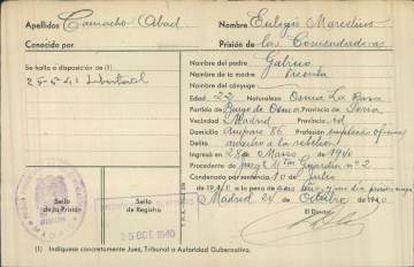 Apellidos Camacho Abad Nombre Eulogio Marcelino
Conocido por Prisión de las Comendadoras
Se halla a disposición de (1) Nombre del padre Gabino
25-5-41 Libertad Nombre de la madre Vicenta
Nombre del cónyuge
Edad 22 Naturaleza Osma La Rasa
Partido de Burgo de Osma Provincia de Soria
Vecindad Madrid Provincia id
Domicilio Amparo 86 Profesión empleado
Delito auxilio a la rebelion
Ingresó en 28 de Marzo de 1940
Procedente de Guardia nº 2
Condenado por sentencia 10 de Julio
de 19 a la pena de y un dia prision mayor
Madrid 24 de Octubre de 1940
El Director
Sello de la Prisión
Sello de Registro
25 OCT 1940
(1) Indíquese concretamente Juez, Tribunal o Autoridad Gubernativa.